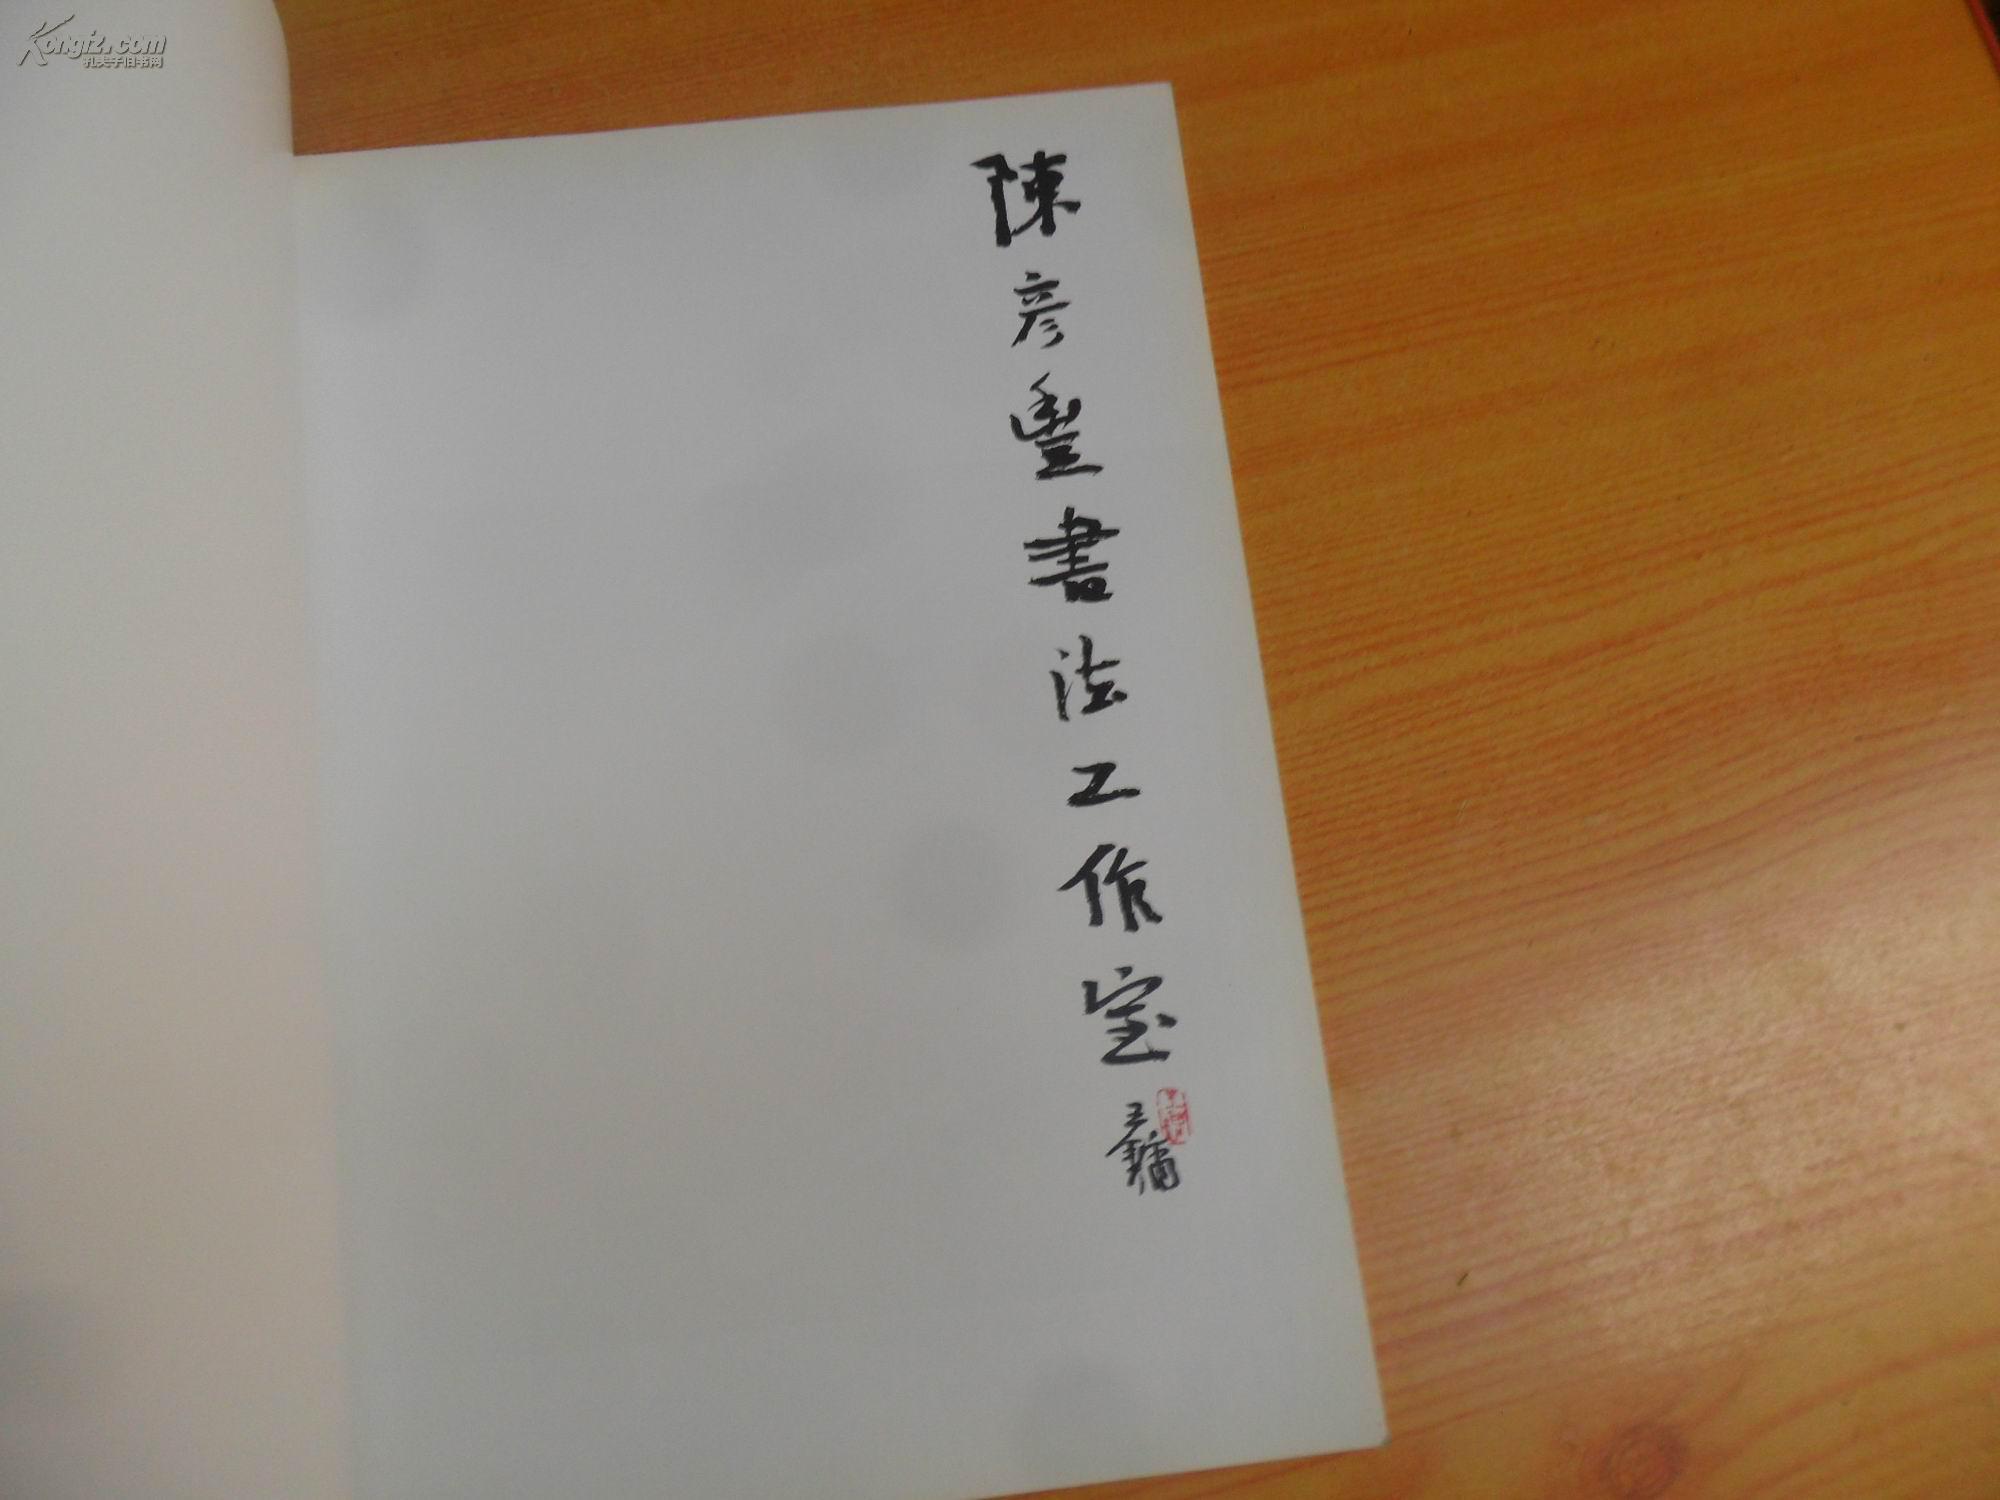 Kongfz.com
孔夫子旧书网
陳彦豐書法工作室
王鏞